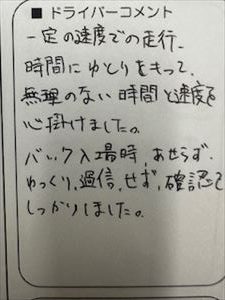 ■ ドライバーコメント
一定の速度での走行、
時間にゆとりをもって、
無理のない時間と速度を
心掛けました。
バック入場時、あせらず、
ゆっくり、過信、せず、確認を
しっかりしました。